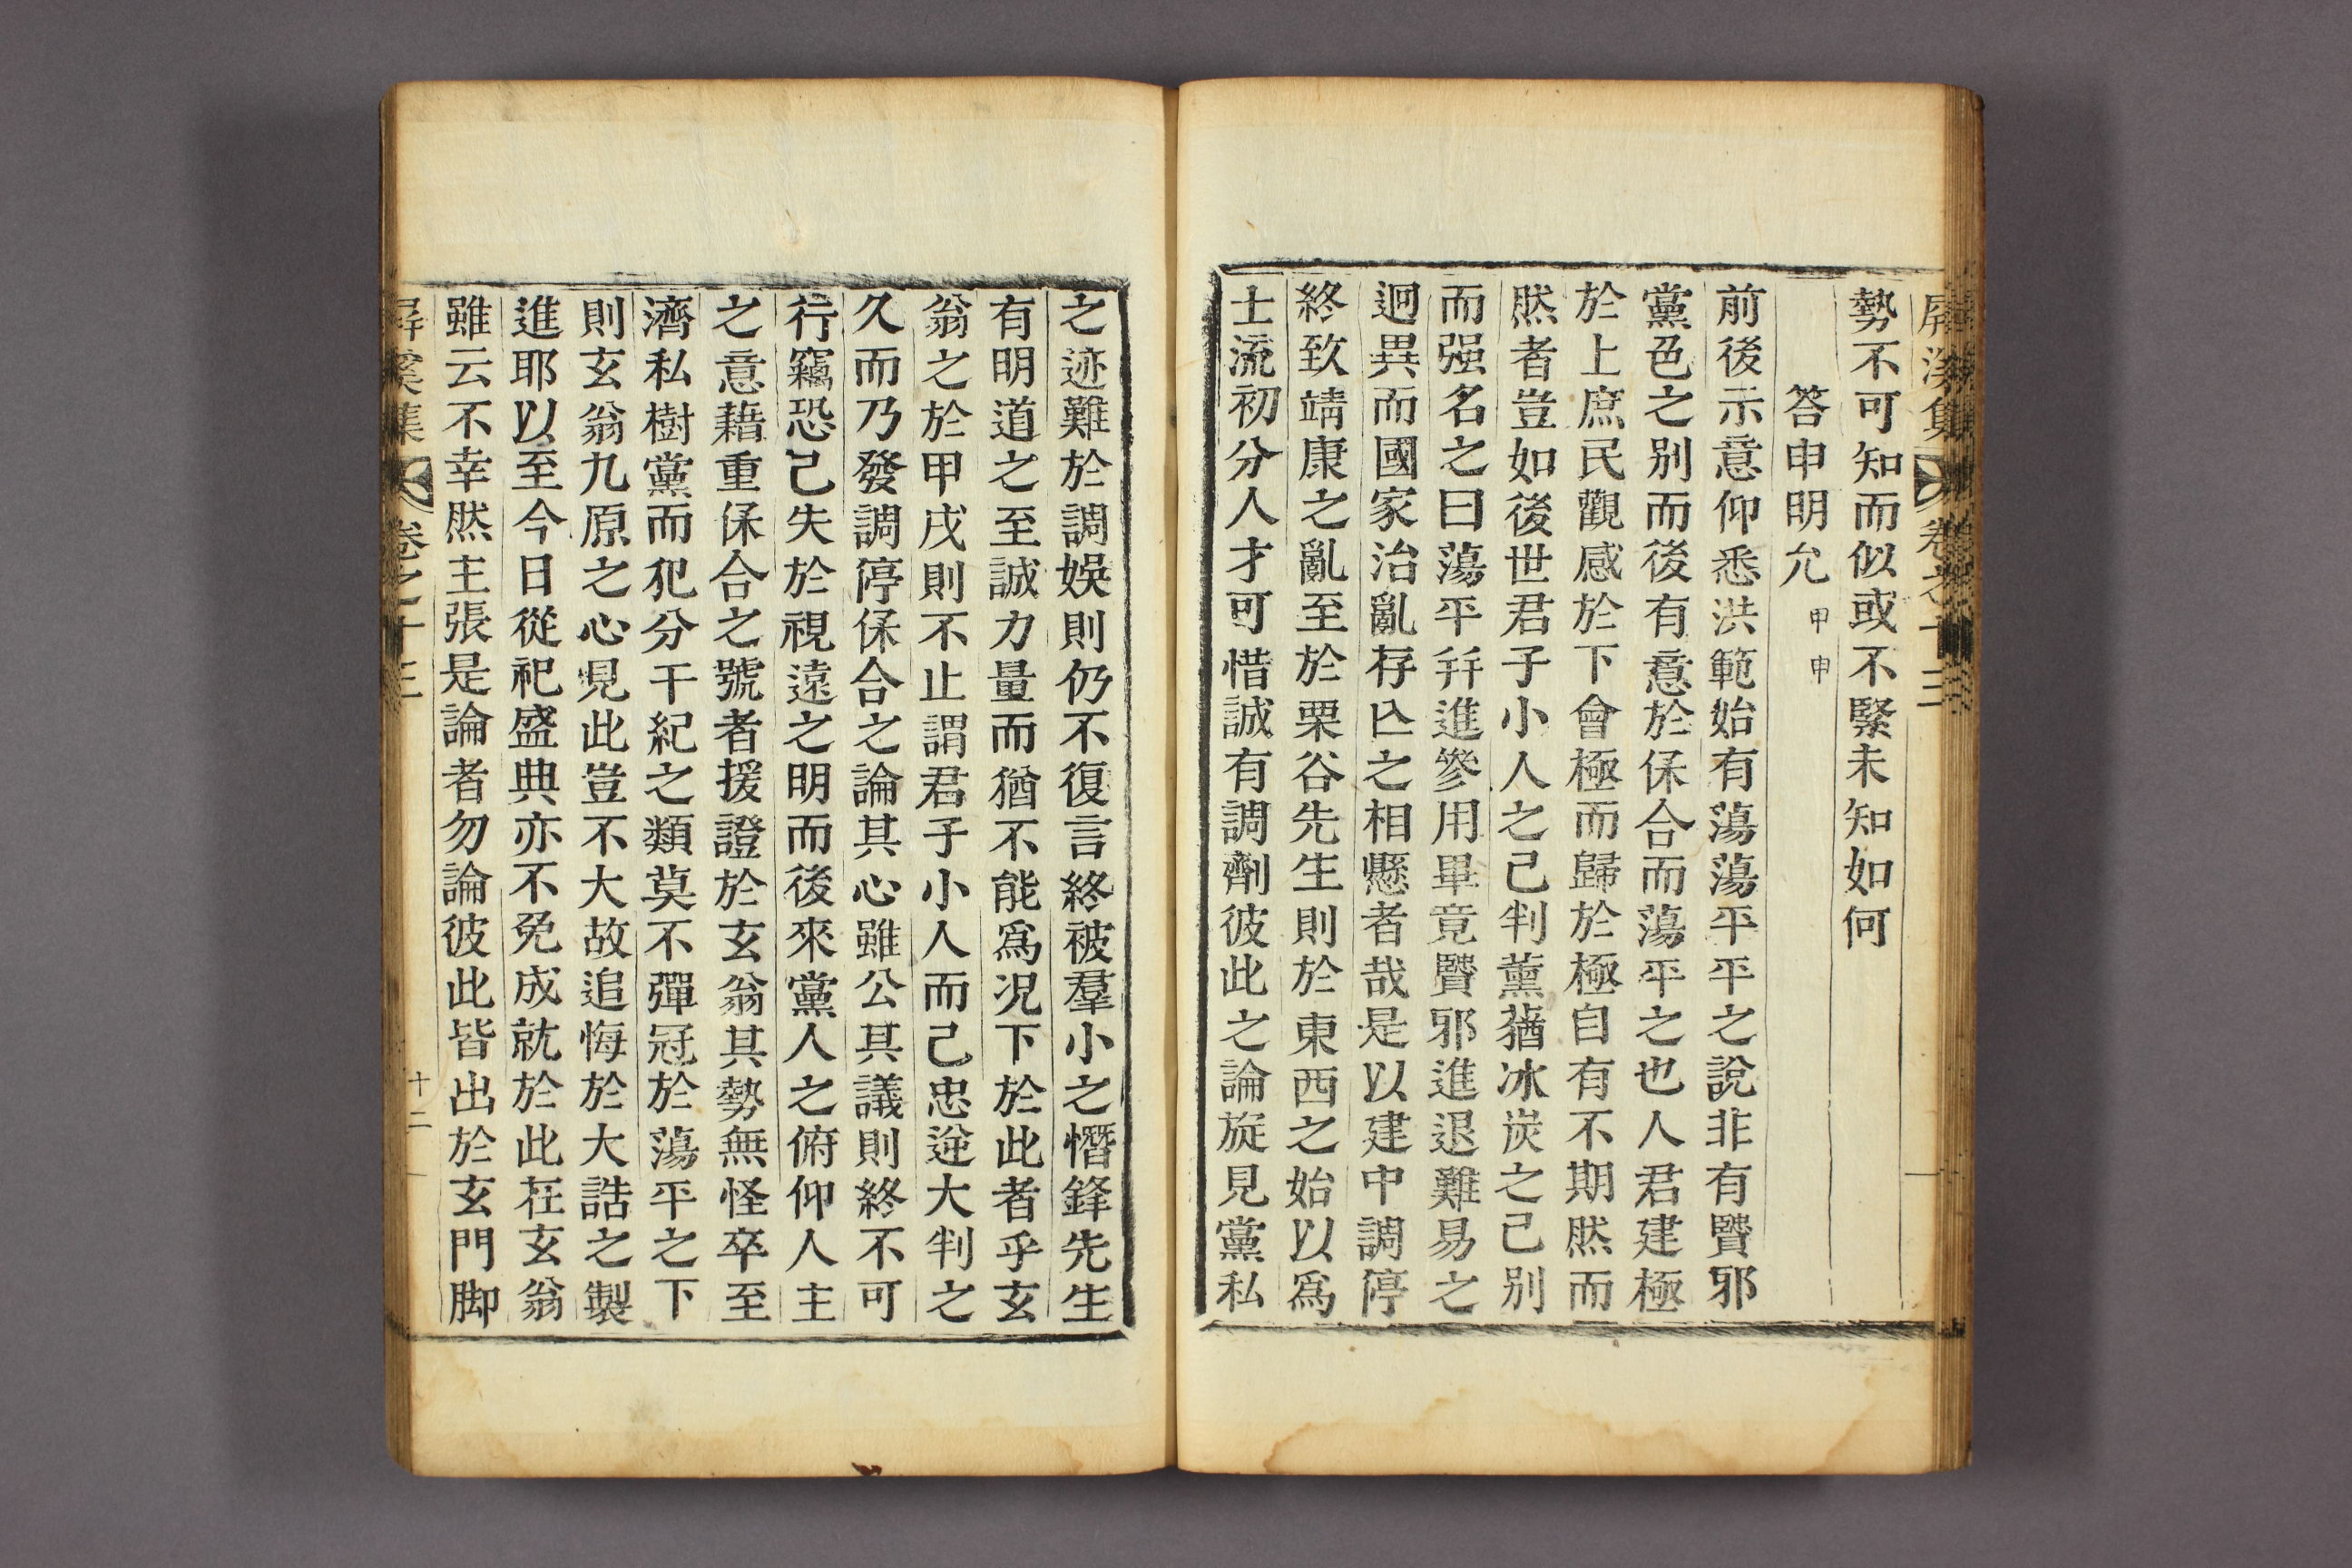 屛溪集 卷之十三
勢不可知而似或不緊未知如何
答申明允 甲申
前後示意仰悉洪範始有蕩蕩平平之說非有賢邪
黨色之別而後有意於保合而蕩平之也人君建極
於上庶民觀感於下會極而歸於極自有不期然而
然者豈如後世君子小人之已判薰蕕冰炭之已別
而强名之曰蕩平幷進參用畢竟賢邪進退難易之
逈異而國家治亂存亡之相懸者哉是以建中調停
終致靖康之亂至於栗谷先生則於東西之始以爲
士流初分人才可惜誠有調劑彼此之論旋見黨私
之迹難於調娛則仍不復言終被羣小之憯鋒先生
有明道之至誠力量而猶不能爲况下於此者乎玄
翁之於甲戌則不止謂君子小人而已忠逆大判之
久而乃發調停保合之論其心雖公其議則終不可
行竊恐已失於視遠之明而後來黨人之俯仰人主
之意藉重保合之號者援證於玄翁其勢無怪卒至
濟私樹黨而犯分干紀之類莫不彈冠於蕩平之下
則玄翁九原之心見此豈不大故追悔於大誥之製
進耶以至今日從祀盛典亦不免成就於此在玄翁
雖云不幸然主張是論者勿論彼此皆出於玄門脚
屛溪集 卷之十三 十二